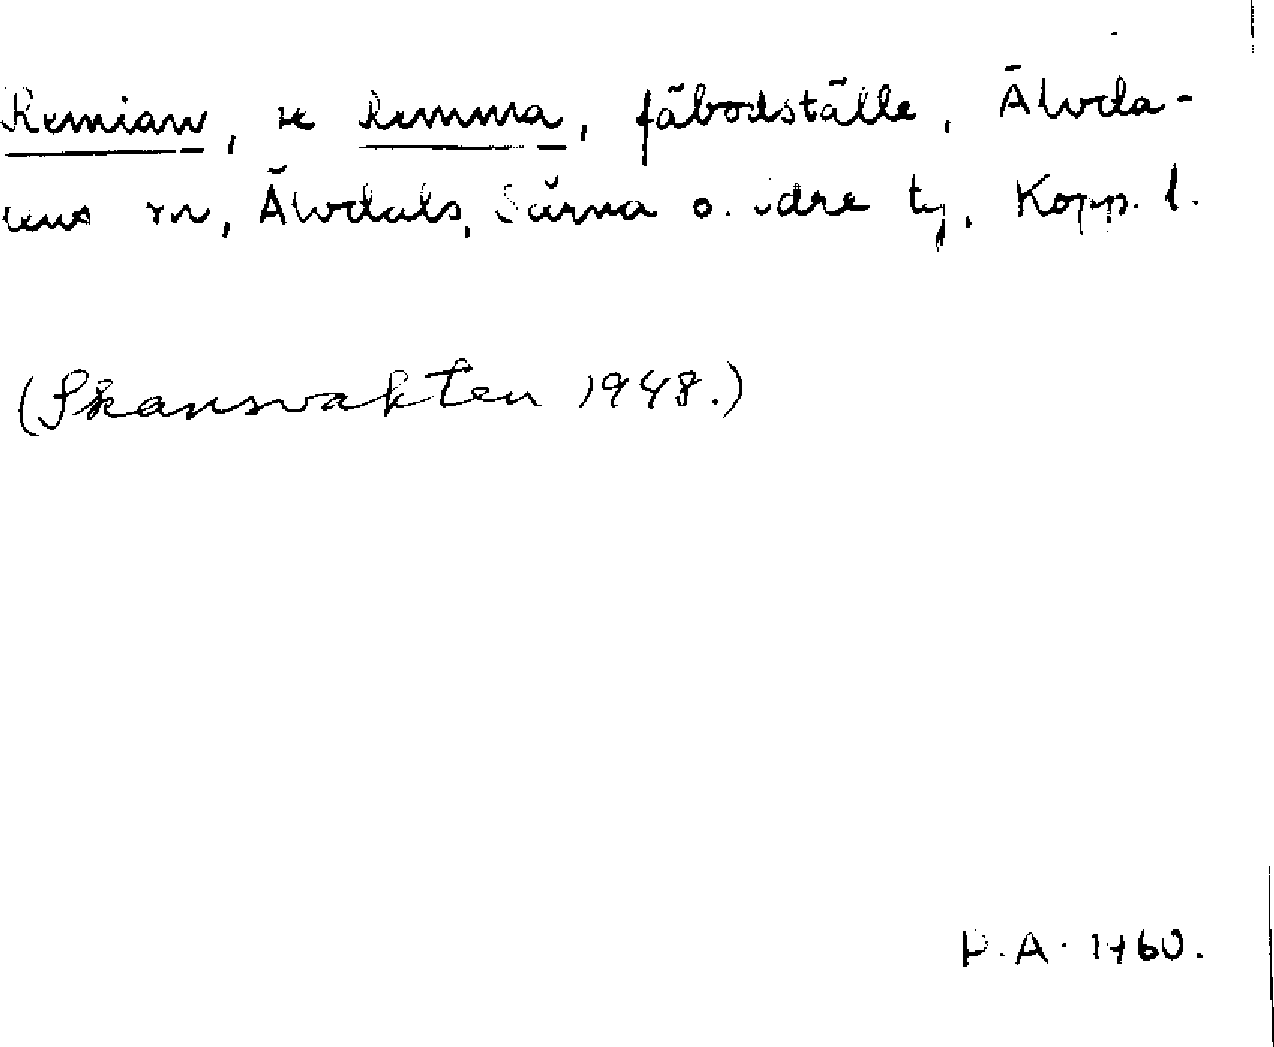 Remian, se Remma, fäbodställe, Älvda-
lens sn, Älvdals, Särna o. Idre tg, Kopp. l.
(Skansvakten 1948.)
P.A. 1960.